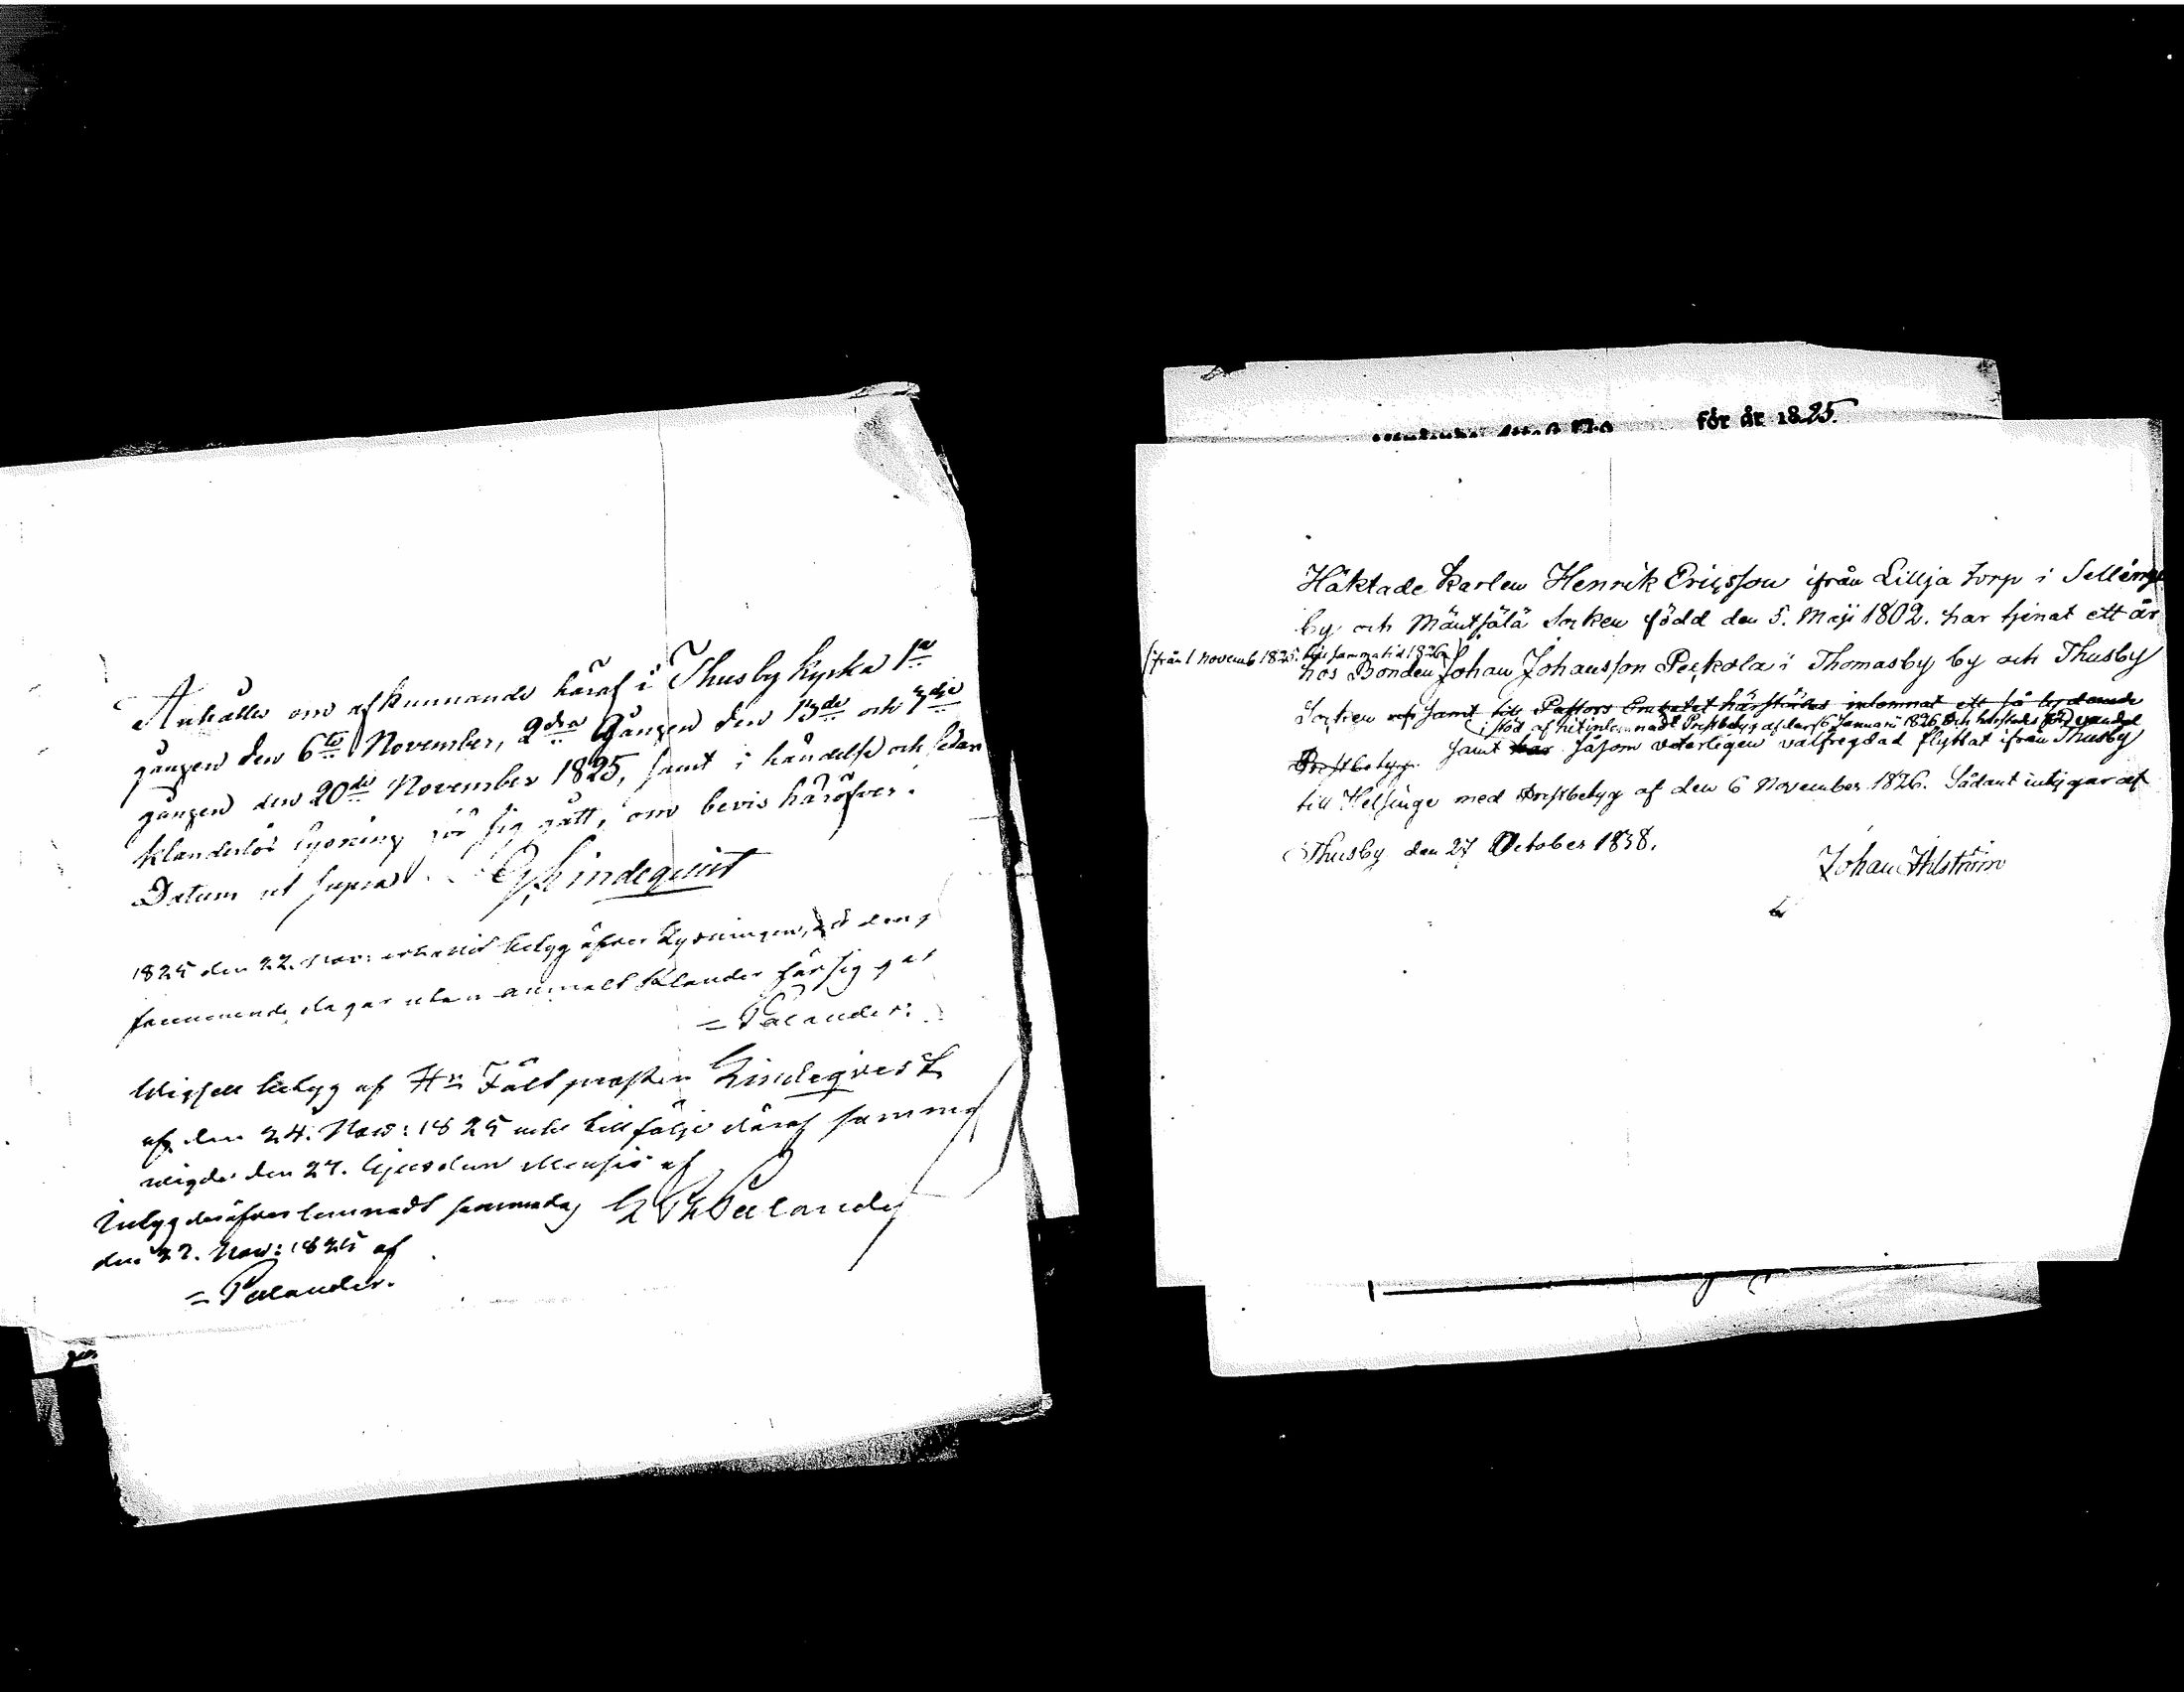 Anhålles om afkunnande häraf i Thusby kyrka 1a
gången den 6te November, 2dra Gången den 13de och 3die
gången den 20de November 1825, samt i händelse och sedan
klanderlös lysning för sig gått, om bevis häröfver.
Datum ut supra. Lindequist
1825 den 22. Nov: erhållit betyg öfver Lysningen, den
sammende dagar utan anmält klander för sig gåt
= Palander:
Wigsell betyg af Hr Fältprosten Lindeqvist
af den 24. Nov: 1825 och till följe däraf samma
wigde den 27. ejusdem Mensis af
Palander
Intyg deröfver lemnadt samma dag
den 27. Nov: 1825 af
= Palander.
för år 1825.
Häktade Karlen Henrik Ericsson ifrån Lillja torp i Sellinge
by och Mäntsälä Socken född den 5. Maji 1802. har tjenat ett år
(ifrån 1 Novemb 1825. till samma tid 1826)
hos Bonden Johan Johansson Peckola i Thomasby by och Thusby
Socken samt till Pastors Embetet härstädes inlemnat ett så lydande
i stöd af hit inlemnadt Prestbetyg af den 6 Januarii 1826 och härstädes förd vandel
Prestbetyg. samt har såsom veterligen välfrejdad flyttat ifrån Thusby
till Helsinge med Prestbetyg af den 6 November 1826. Sådant intygar af
Thusby den 27 October 1838.
Johan Ahlström